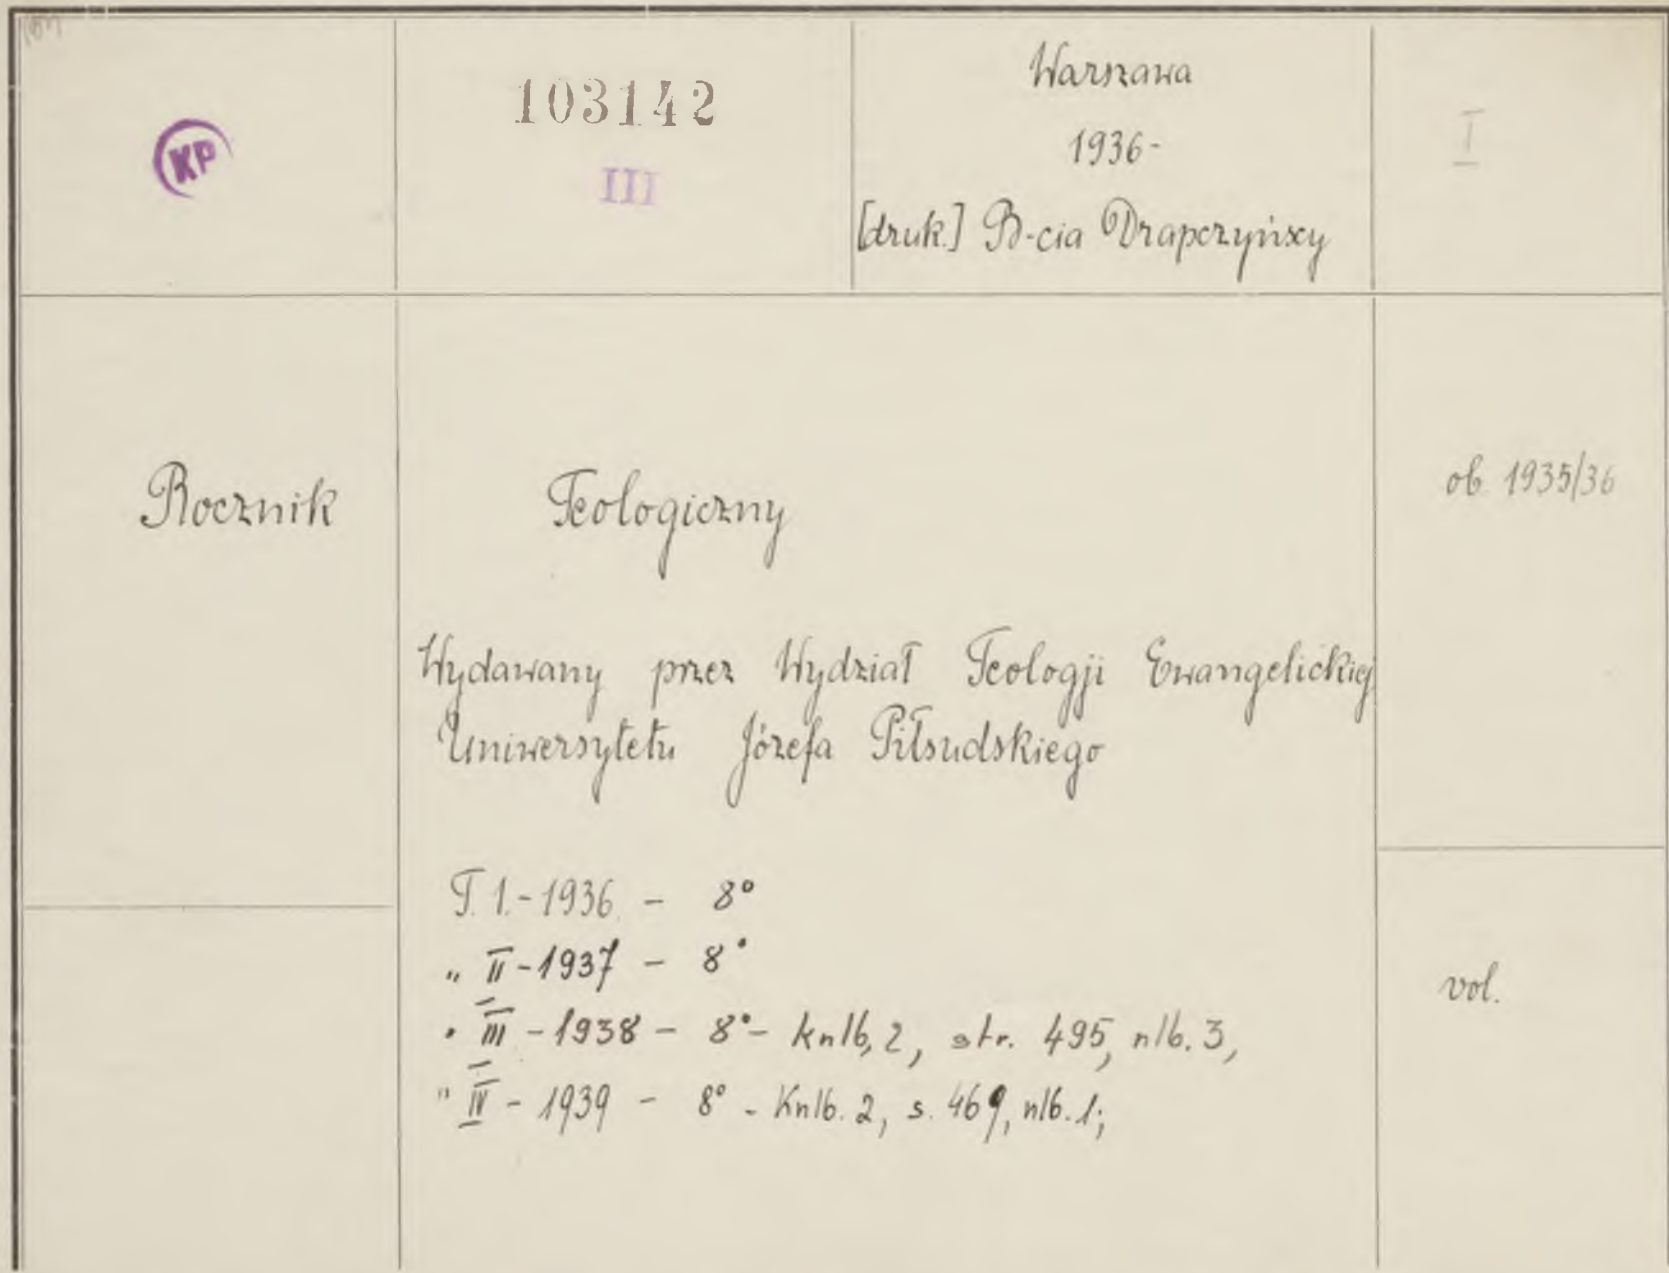 KP
103142
III
Warszawa
1936-
[druk.] B-cia Drapczyńscy
I
Rocznik Teologiczny
ob. 1935/36
Wydawany przez Wydział Teologji Ewangelickiej
Uniwersytetu Józefa Piłsudskiego
T. 1.-1936 - 8°
" II-1937 - 8°
" III - 1938 - 8° - knlb. 2, str. 495, nlb. 3,
" IV - 1939 - 8° - Knlb. 2, s. 469, nlb. 1;
vol.